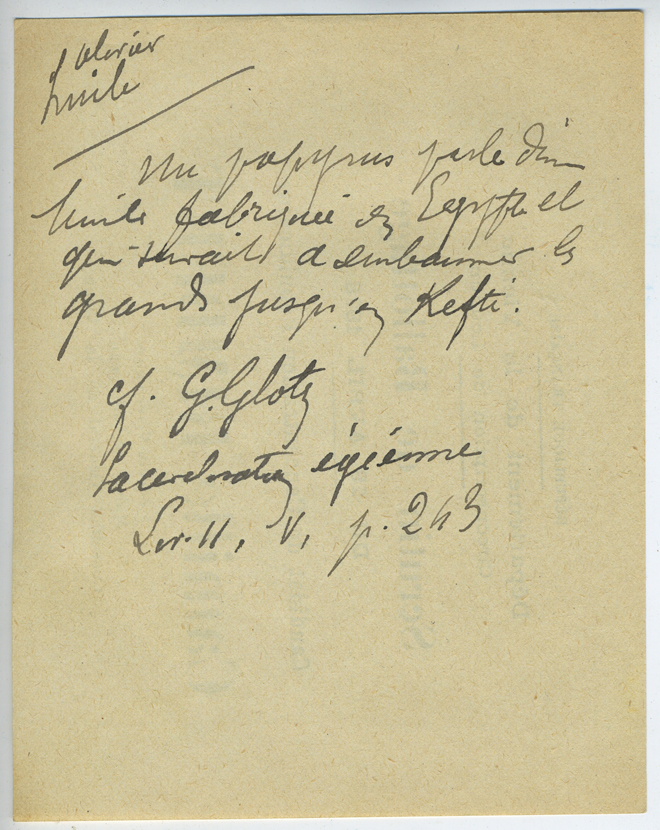 olivier
huile
Un papyrus parle d'une
huile fabriquée en Egypte et
qui servait à embaumer les
grands jusqu'en Kefti.
cf. G. Glotz
La civilisation égéenne
Liv. II, V, p. 243